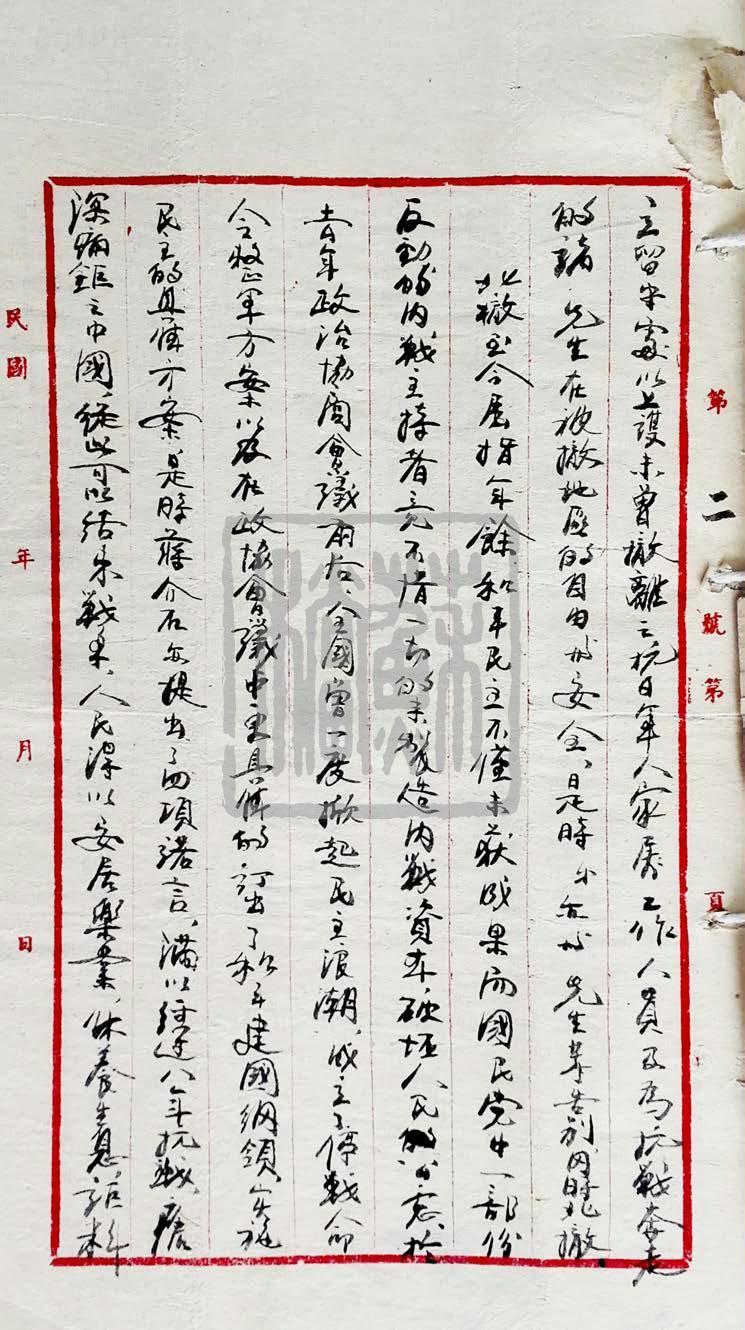 第二號第 頁
立留半處以上護未曾撤離之抗日軍人家屬工作人員及為抗戰奔走
的諸 先生在被撤地區的自由與安全、是時 與 先生等告別、同時北撤、
北撤至今屈指年餘和平民主不僅未獲成果而國民党中一部份
反動的內戰主持者竟不惜一切的來製造內戰資本破坏人民的公意、於
去年政治協商會議前后、全國曾一度掀起民主浪潮、成立了停戰命
令整軍方案以及在政協會議中更具体的訂出了和平建國綱領、实施
民主的具体方案是時蔣介石亦提出了四項諾言、滿以經过八年抗戰、瘡
深痛鉅之中國、從此可以結朿戰爭、人民得以安居樂業、休養生息、詎料
民國 年 月 日